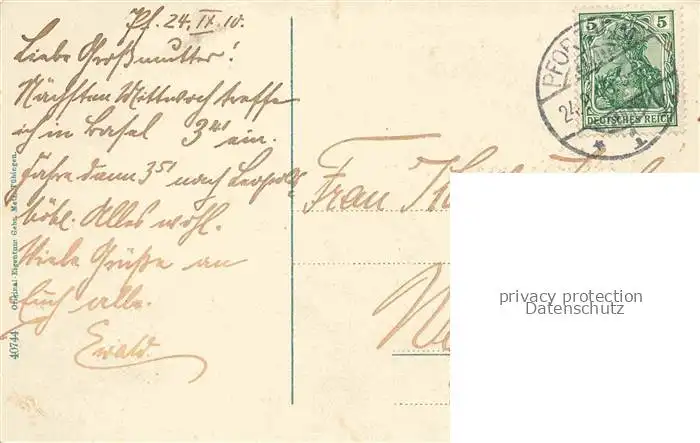 Pf. 24. IX. 10.
Liebe Großmutter!
Nächsten Mittwoch treffe
ich in Basel 3 41 ein.
Fahre dann 3 51 nach Leopolds
höhe. Alles wohl.
Viele Grüße an
Euch alle.
Ewald.
40744 Original-Eigentum Gebr. Metz, Tübingen
5 5
DEUTSCHES REICH
PFO
24.9
Frau
privacy protection
Datenschutz